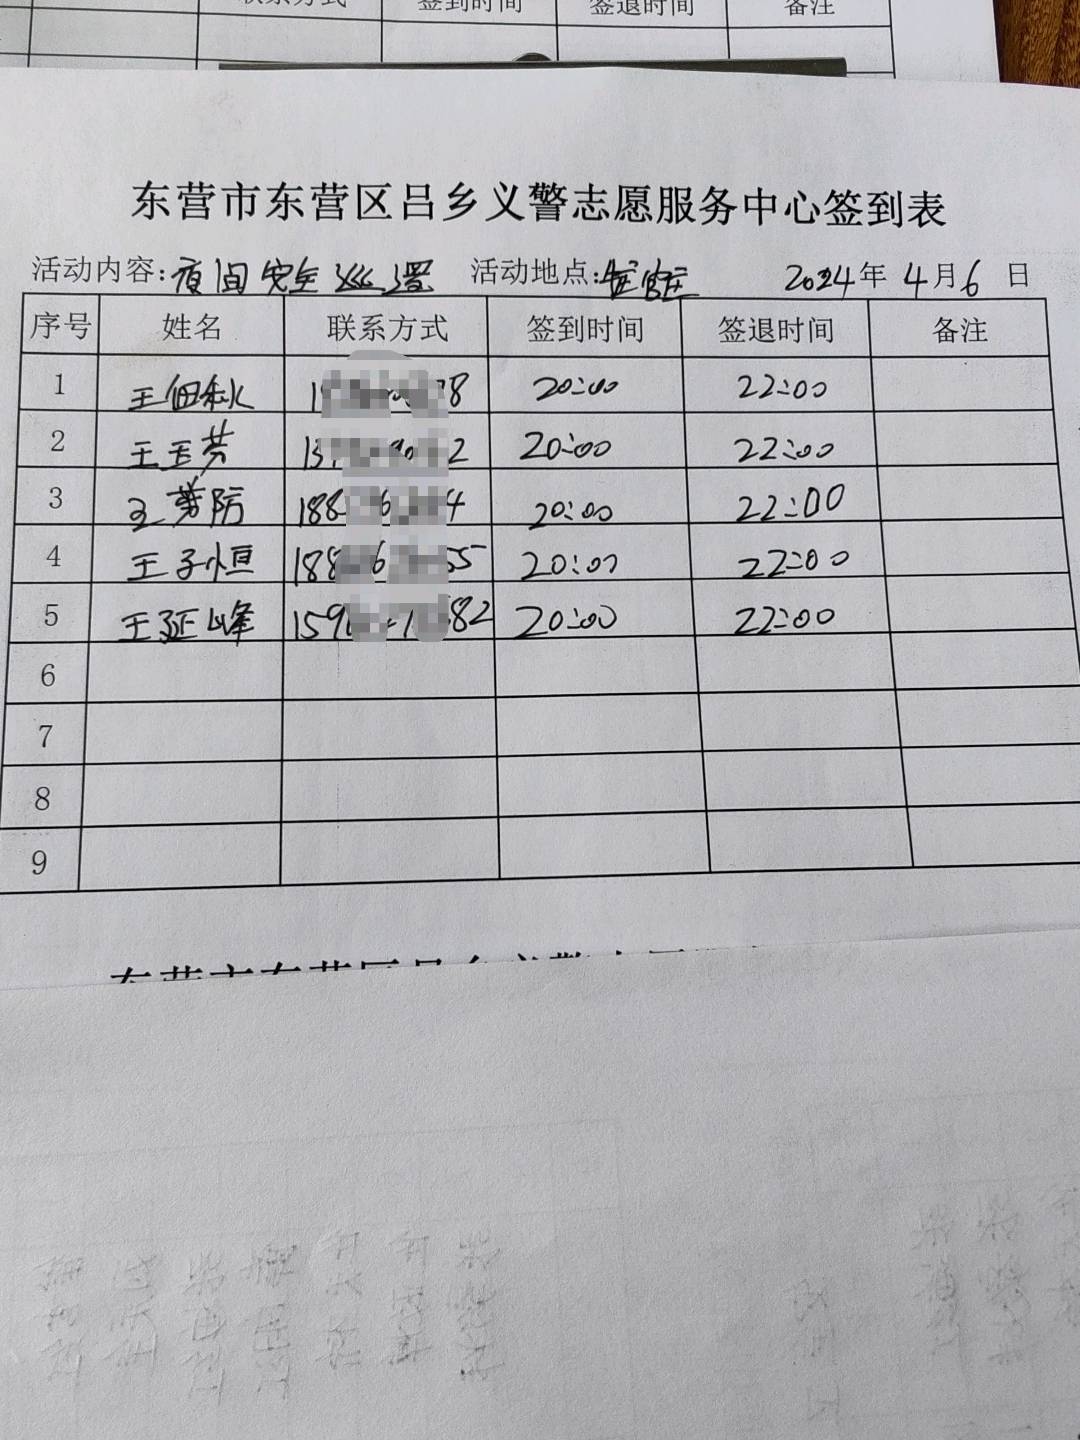 联系方式 签到时间 签退时间 备注
东营市东营区吕乡义警志愿服务中心签到表
活动内容:夜间安全巡逻 活动地点: 2024年4月6日
序号 姓名 联系方式 签到时间 签退时间 备注
1 王佃秋 8 20:00 22:00
2 王玉芳 13 2 20:00 22:00
3 王 防 188 4 20:00 22:00
4 王子恒 188 55 20:00 22:00
5 王延峰 159 82 20:00 22:00
6
7
8
9